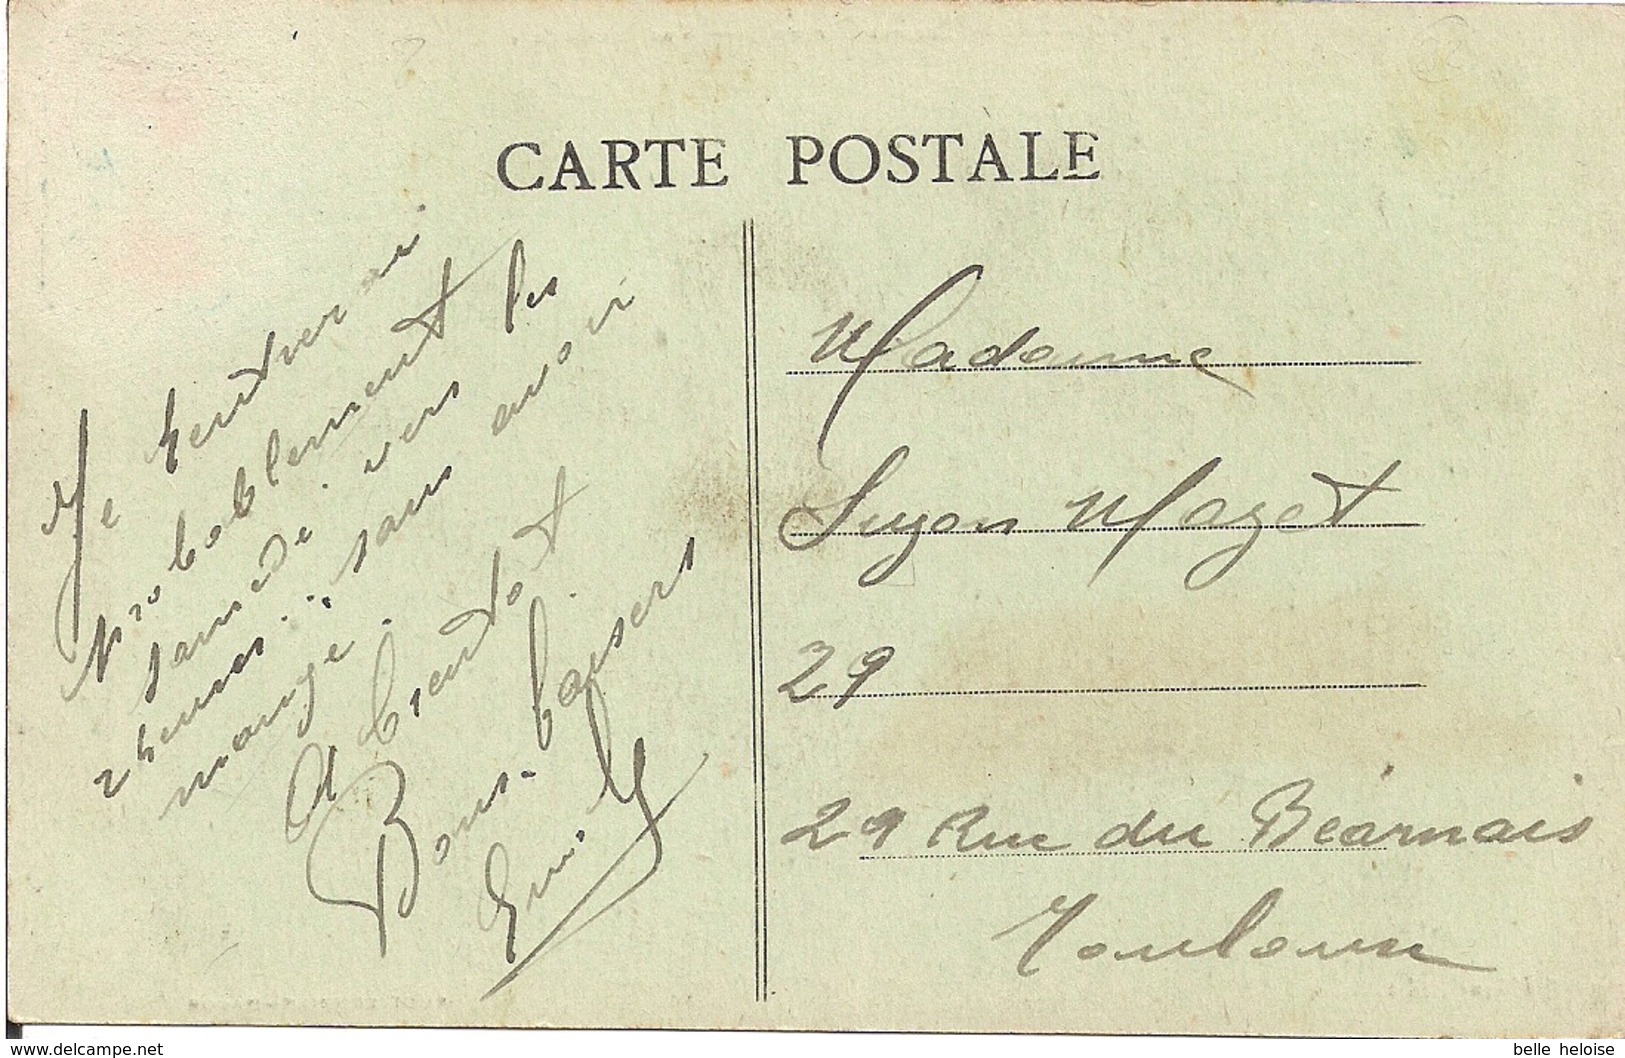 CARTE POSTALE
Je rentrerai
probablement les
samedi. vers
2 heures... sans avoir
mangé.
A bientot
Bons. baisers
Emile
Madame
Suzon Mazet
29
29 Rue du Béarnais
Toulouse
www.delcampe.net
belle heloise